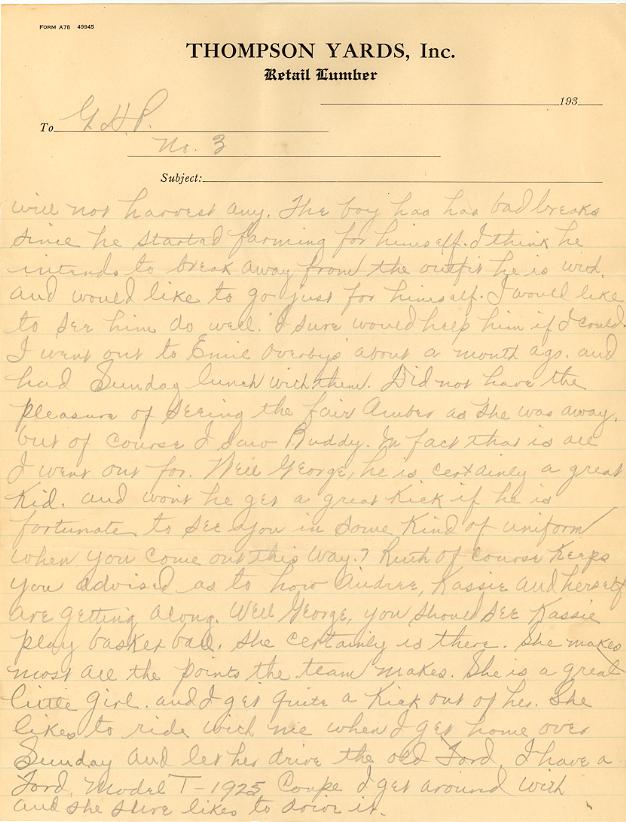 FORM A76 49945
THOMPSON YARDS, Inc.
Retail Lumber
193
To G. H. P.
No. 3
Subject:
will not harvest any. The boy has has bad breaks
since he started farming for himself. I think he
intends to break away from the outfit he is with.
and would like to go just for himself. I would like
to see him do well. I sure would help him if I could.
I went out to Emil Overbys about a month ago. and
had Sunday lunch with them. Did not have the
pleasure of seeing the fair Amber as she was away.
but of course I saw Buddy. In fact that is all
I went out for. Well George, he is certainly a great
Kid. and wont he get a great Kick if he is
fortunate to see you in some Kind of uniform
when you come out this way? Ruth of course Keeps
you advised as to how Audree, Kassie and herself
are getting along. Well George, you should see Kassie
play basket ball. She certainly is there. She makes
most all the points the team makes. She is a great
little girl. and I get quite a Kick out of her. She
likes to ride with me when I get home over
Sunday and let her drive the old Ford. I have a
Ford, Model T-1925, Coupe I get around with
and she sure likes to drive it.